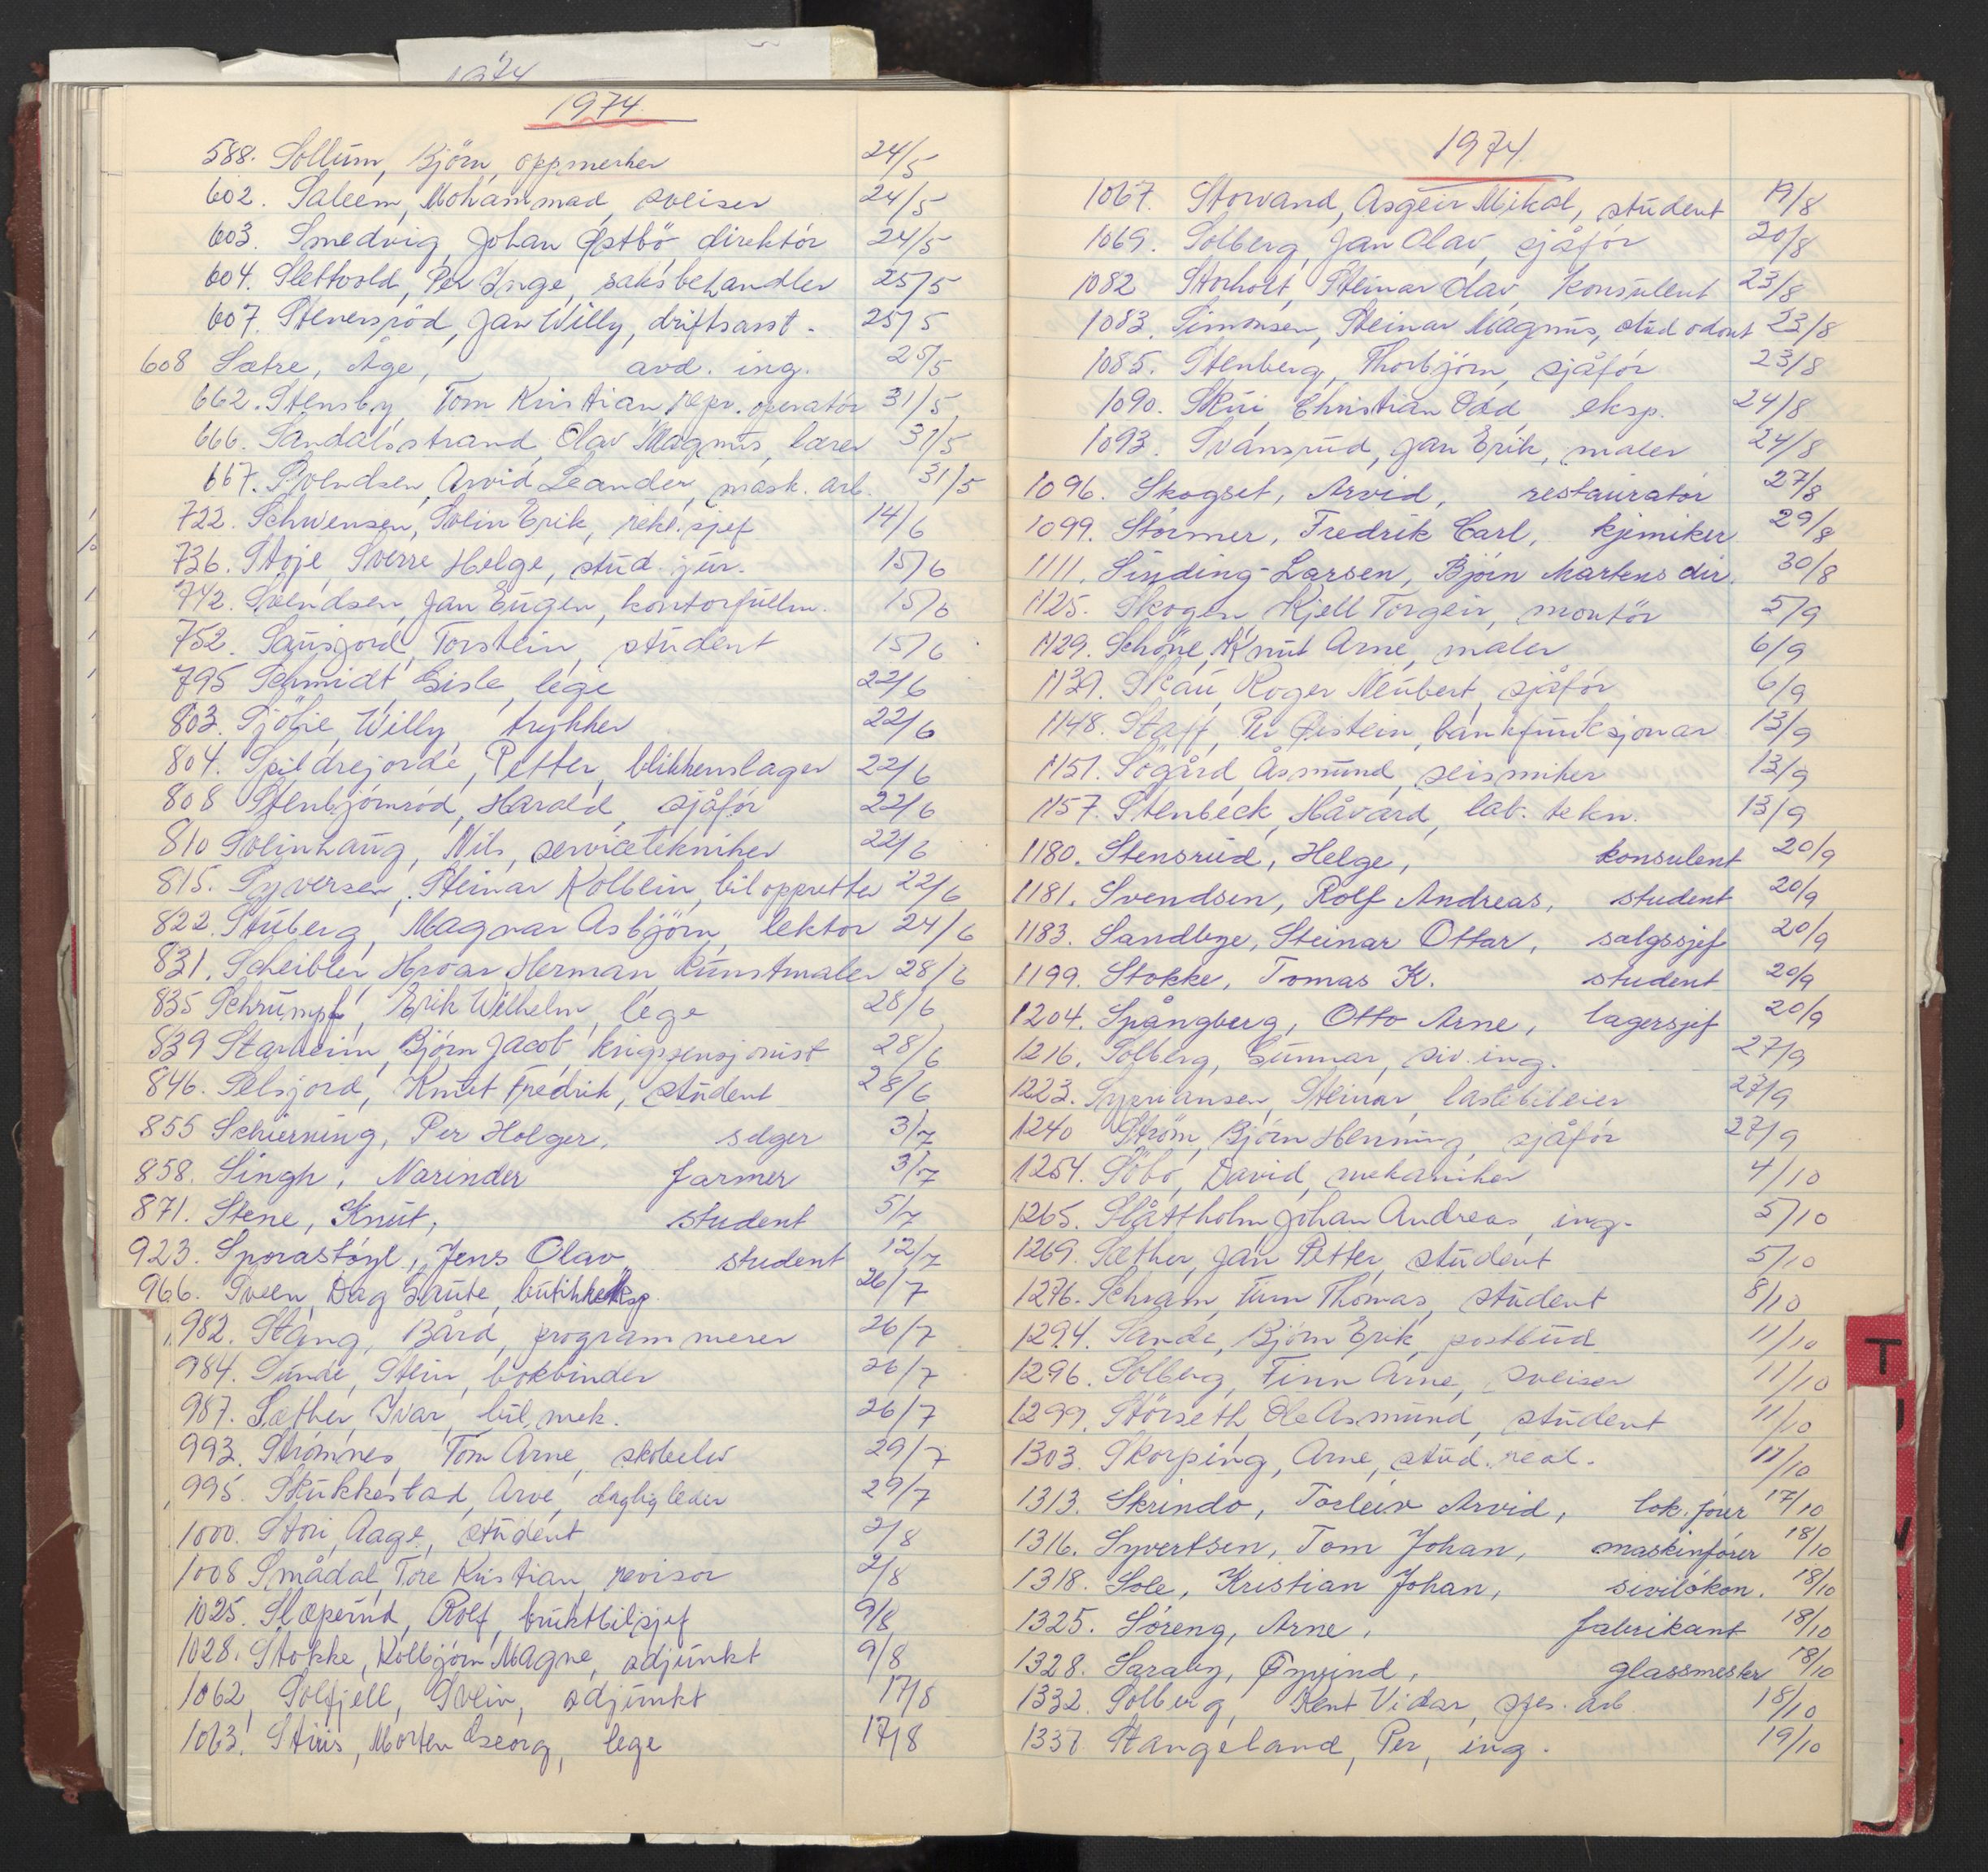 1974
1974.
588. Sollum, Björn, oppmerker 24/5
602. Saleem, Mohammad, sveiser 24/5
603. Smedvig, Johan Østbö, direktör 24/5
604. Slettvold, Per Inge, saksbehandler 25/5
607. Stenersröd, Jan Willy, driftsasst. 25/5
608 Sætre, Åge, avd. ing. 25/5
662. Stensby, Tom Kristian, repr. operatör 31/5
666. Sandalsstrand, Olav Magnus, lærer 31/5
667. Svendsen, Arvid Leander, mask. arb. 31/5
722. Schwensen, Svein Erik, rekl. sjef 14/6
736. Støje, Sverre Helge, stud. jur. 15/6
742. Svendsen, Jan Eugen, kontorfullm. 15/6
752. Sausjord, Torstein, student 15/6
795 Schmidt, Gisle, lege 22/6
803. Sjölie, Willy, trykker 22/6
804. Spildrejorde, Petter, blikkenslager 22/6
808 Stenbjörnröd, Harald, sjåför 22/6
810 Solinhaug, Nils, servicetekniker 22/6
815. Syversen, Steinar Kolbein, bil oppretter 22/6
822. Stuberg, Magnar Asbjörn, lektor 24/6
831. Scheibler, Hroar Herman, kunstmaler 28/6
835 Schrumpf, Erik Wilhelm, lege 28/6
839 Starheim, Björn Jacob, krigspensjonist 28/6
846. Selsjord, Knut Fredrik, student 28/6
855 Schierning, Per Holger, selger 3/7
858. Singh, Narinder farmer 3/7
871. Stene, Knut, student 5/7
923. Sporastöyl, Jens Olav student 12/7
966. Sveen, Dag Gaute, butikkeksp. 26/7
982. Stang, Bård, programmerer 26/7
984. Sunde, Stein, bokbinder 26/7
987. Sæther, Ivar, bil.mek. 26/7
993. Strömnes, Tom Arne, skoleelev 29/7
995. Stukkestad, Arve, daglig leder 29/7
1000. Stori, Aage, student 2/8
1008 Smådal, Tore Kristian, revisor 2/8
1025. Slæperud, Rolf, bruktbilsjef 9/8
1028. Stokke, Kolbjörn Magne, adjunkt 9/8
1062, Solfjell, Svein, adjunkt 17/8
1063. Stiris, Morten Georg, lege 17/8
1974
1067. Storvand, Asgeir Mikal, student 19/8
1069. Solberg, Jan Olav, sjåför 20/8
1082 Storholt, Steinar Olav, konsulent 23/8
1083. Simonsen, Steinar Magnus, stud odont 23/8
1085. Stenberg, Thorbjörn, sjåför 23/8
1090. Skui, Christian Odd eksp. 24/8
1093. Svansrud, Jan Erik, maler 24/8
1096. Skogset, Arvid, restauratör 27/8
1099. Störmer, Fredrik Carl, kjemiker 29/8
1111. Sinding-Larsen, Björn Martens dir. 30/8
1125. Skogen, Kjell Torgeir, montör 5/9
1129. Schöne, Knut Arne, maler 6/9
1139. Skau, Roger Neubert, sjåför 6/9
1148. Staff, Per Øistein, bankfunksjonær 13/9
1151. Sögård, Åsmund, seismiker 13/9
1157. Stenbeck, Håvard, lab. tekn. 13/9
1180. Stensrud, Helge, konsulent 20/9
1181. Svendsen, Rolf Andreas, student 20/9
1183. Sandbye, Steinar Ottar, salgssjef 20/9
1199. Stokke, Tomas K. student 20/9
1204. Spångberg, Otto Arne, lagersjef 20/9
1216. Solberg, Gunnar, siv. ing. 27/9
1223. Sypriansen, Steinar, lastebileier 27/9
1240 Ström, Björn Henning, sjåför 27/9
1254. Söbö, David, mekaniker 4/10
1265. Slåttholm, Johan Andreas, ing. 5/10
1269. Sæther, Jan Petter, student 5/10
1276. Schram, Finn Thomas, student 8/10
1294. Sande, Björn Erik, postbud 11/10
1296. Solberg, Finn Arne, sveiser 11/10
1299. Störseth, Ole Asmund, student 11/10
1303. Skorping, Arne, stud. real. 11/10
1313. Skrindo, Torleiv Arvid, lok. förer 17/10
1316. Syvertsen, Tom Johan, maskinförer 18/10
1318. Sole, Kristian Johan, sivilökon. 18/10
1325. Söreng, Arne, fabrikant 18/10
1328. Saraby, Öyvind, glassmester 18/10
1332. Solberg, Kent Vidar, spes. arb 18/10
1337 Stangeland, Per, ing. 19/10
T